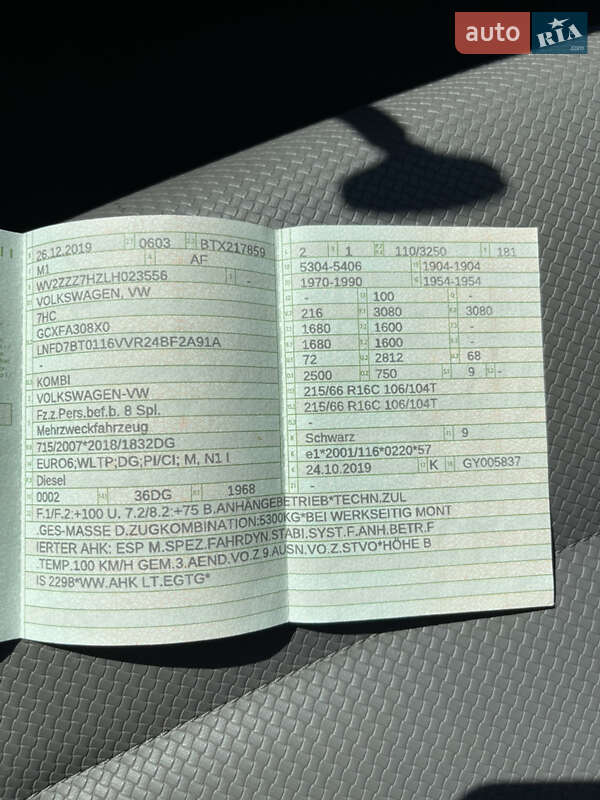 auto RIA .com
26.12.2019 0603 BTX217859
M1 AF
WV2ZZZ7HZLH023556 -
VOLKSWAGEN, VW
7HC
GCXFA308X0
LNFD7BT0116VVR24BF2A91A
-
KOMBI
VOLKSWAGEN-VW
Fz.z.Pers.bef.b. 8 Spl.
Mehrzweckfahrzeug
715/2007*2018/1832DG
EURO6;WLTP;DG;PI/CI; M, N1 I
Diesel
0002 36DG 1968
2 1 110/3250 181
5304-5406 1904-1904
1970-1990 1954-1954
- 100 -
216 3080 3080
1680 1600 -
1680 1600 -
72 2812 68
2500 750 9 -
215/66 R16C 106/104T
215/66 R16C 106/104T
-
Schwarz 9
e1*2001/116*0220*57
24.10.2019 K GY005837
-
F.1/F.2:+100 U. 7.2/8.2:+75 B.ANHÄNGEBETRIEB*TECHN.ZUL
.GES-MASSE D.ZUGKOMBINATION:5300KG*BEI WERKSEITIG MONT
IERTER AHK: ESP M.SPEZ.FAHRDYN.STABI.SYST.F.ANH.BETR.F
.TEMP.100 KM/H GEM.3.AEND.VO.Z.9.AUSN.VO.Z.STVO*HÖHE B
IS 2298*WW.AHK LT.EGTG*